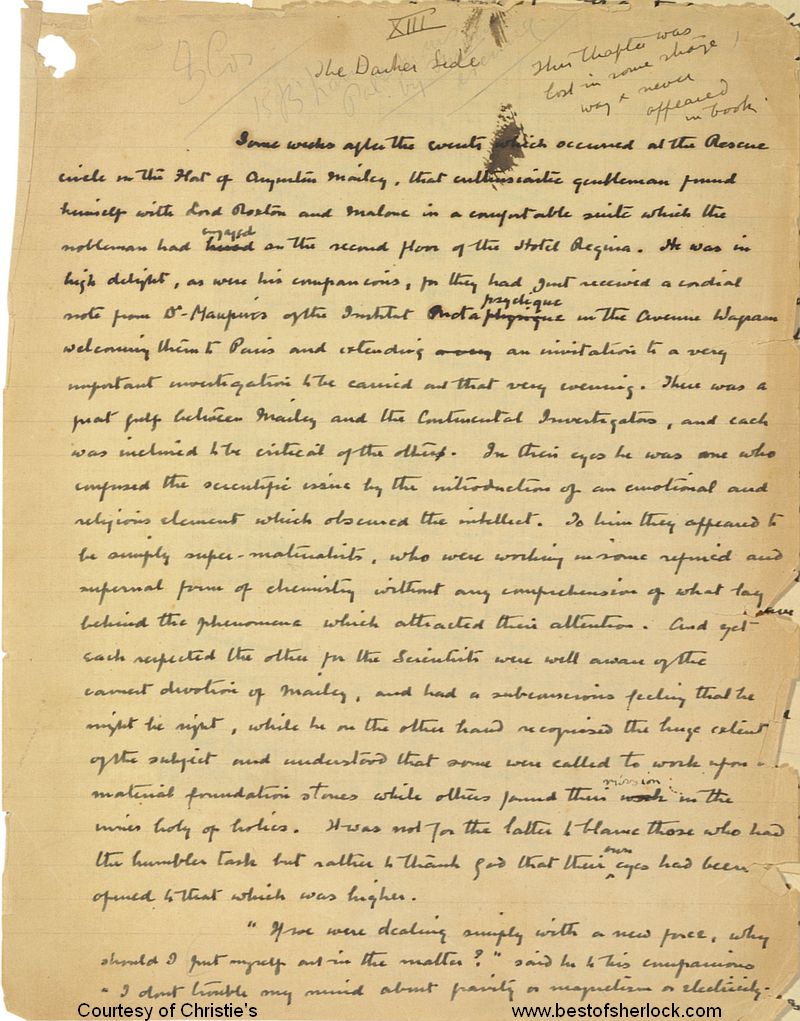 XIII
The Darker Side
This Chapter was
lost in some strange
way & never
appeared
in book.
Some weeks after the events which occurred at the Rescue
circle in the Flat of Augustus Mailey, that enthusiastic gentleman found
himself with Lord Roxton and Malone in a comfortable suite which the
engaged
nobleman had hired on the second floor of the Hotel Regina. He was in
high delight, as were his companions, for they had just received a cordial
psychique
note from Dr Maupuis of the Institut Metaphysique in the Avenue Wagram
welcoming them to Paris and extending an invitation to a very
important investigation to be carried out that very evening. There was a
great gulf between Mailey and the Continental Investigators, and each
was inclined to be critical of the other. In their eyes he was one who
confused the scientific issue by the introduction of an emotional and
religious element which obscured the intellect. To him they appeared to
be simply super-materialists, who were working in some refined and
supernal form of chemistry without any comprehension of what lay
behind the phenomena which attracted their attention. And yet
each respected the other for the Scientists were well aware of the
earnest devotion of Mailey, and had a subconscious feeling that he
might be right, while he on the other hand recognised the huge extent
of the subject and understood that some were called to work upon
mission
material foundation stones while others found their work in the
inner holy of holies. It was not for the latter to blame those who had
own
the humbler task but rather to thank God that their eyes had been
opened to that which was higher.
"If we were dealing simply with a new force, why
should I put myself out in the matter?" said he to his companions
"I dont trouble my mind about gravity or magnetism or electricity.
Courtesy of Christie's
www.bestofsherlock.com